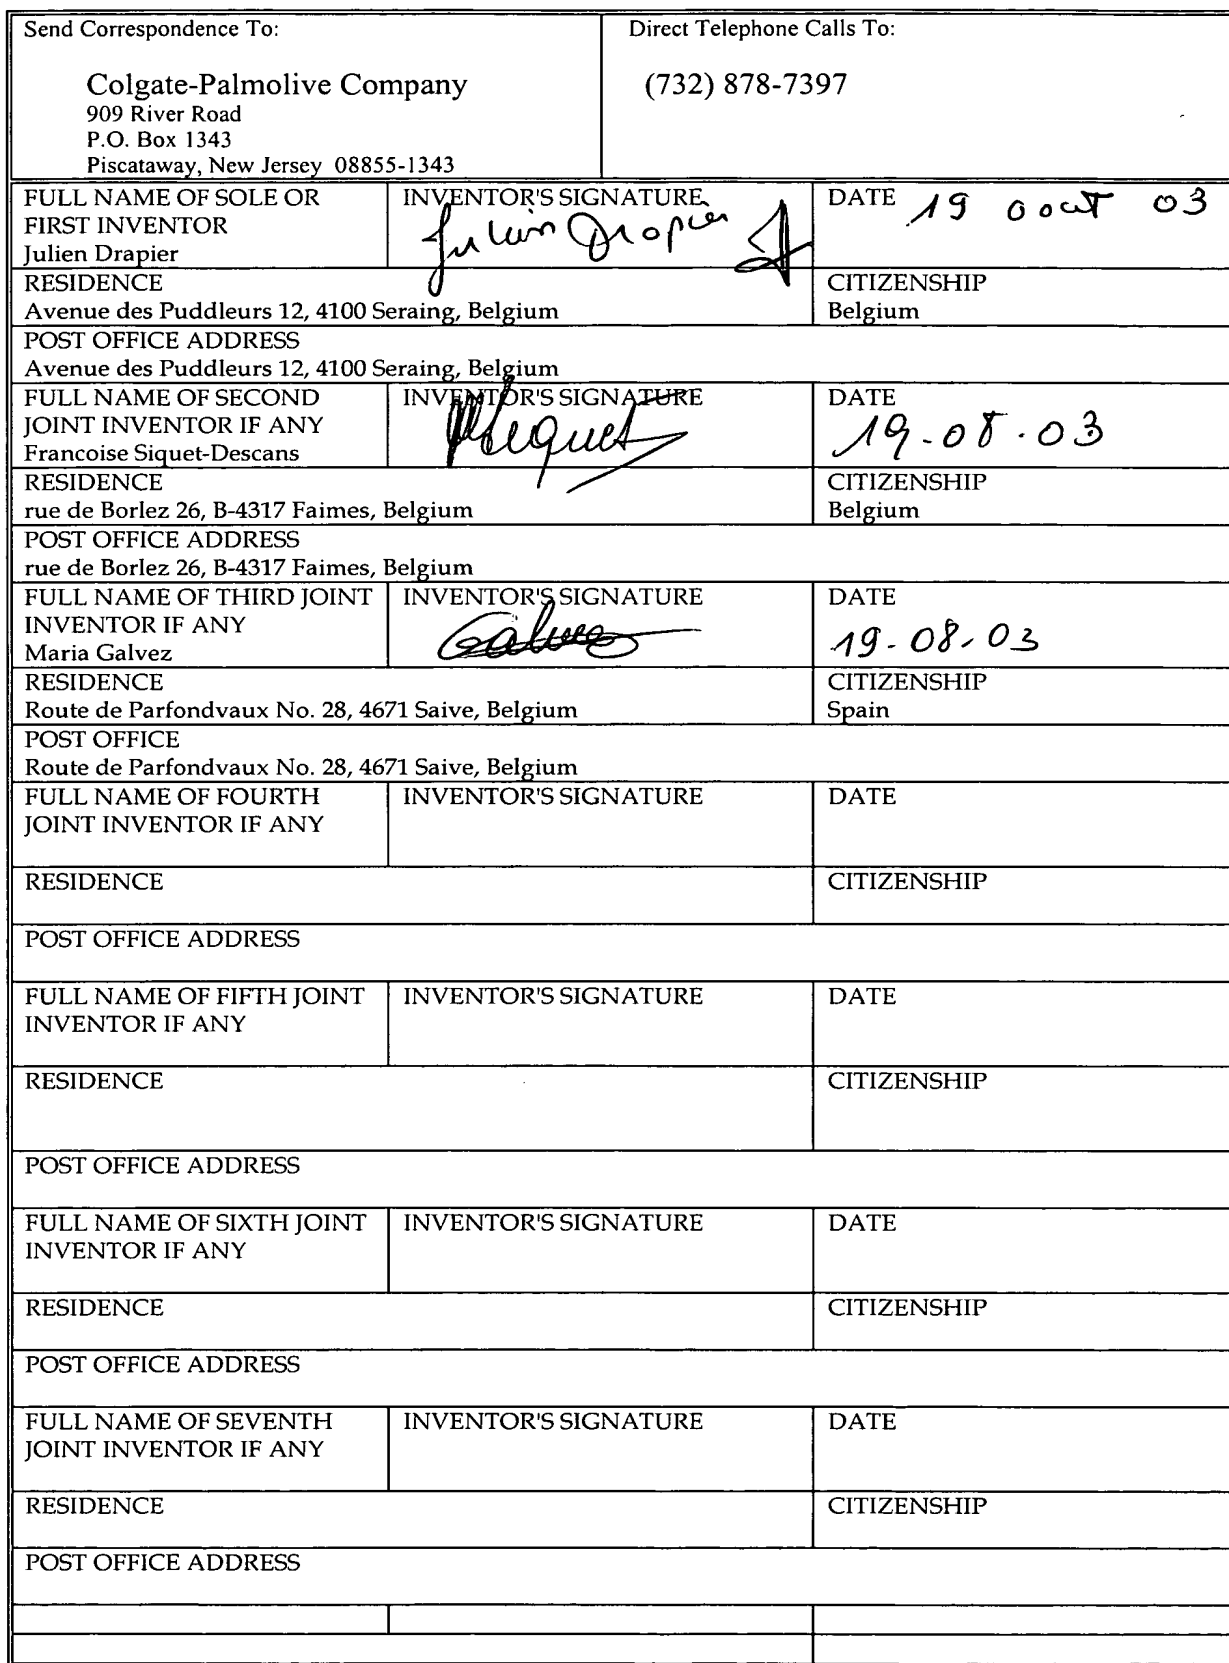 Send Correspondence To:
Direct Telephone Calls To:
Colgate-Palmolive Company
(732) 878-7397
909 River Road
P.O. Box 1343
Piscataway, New Jersey 08855-1343
FULL NAME OF SOLE OR
FIRST INVENTOR
Julien Drapier
INVENTOR'S SIGNATURE
Julien Drapier
DATE 19 aout 03
RESIDENCE
Avenue des Puddleurs 12, 4100 Seraing, Belgium
CITIZENSHIP
Belgium
POST OFFICE ADDRESS
Avenue des Puddleurs 12, 4100 Seraing, Belgium
FULL NAME OF SECOND
JOINT INVENTOR IF ANY
Francoise Siquet-Descans
INVENTOR'S SIGNATURE
Siquet
DATE
19-08-03
RESIDENCE
rue de Borlez 26, B-4317 Faimes, Belgium
CITIZENSHIP
Belgium
POST OFFICE ADDRESS
rue de Borlez 26, B-4317 Faimes, Belgium
FULL NAME OF THIRD JOINT
INVENTOR IF ANY
Maria Galvez
INVENTOR'S SIGNATURE
Galvez
DATE
19-08-03
RESIDENCE
Route de Parfondvaux No. 28, 4671 Saive, Belgium
CITIZENSHIP
Spain
POST OFFICE
Route de Parfondvaux No. 28, 4671 Saive, Belgium
FULL NAME OF FOURTH
JOINT INVENTOR IF ANY
INVENTOR'S SIGNATURE
DATE
RESIDENCE
CITIZENSHIP
POST OFFICE ADDRESS
FULL NAME OF FIFTH JOINT
INVENTOR IF ANY
INVENTOR'S SIGNATURE
DATE
RESIDENCE
CITIZENSHIP
POST OFFICE ADDRESS
FULL NAME OF SIXTH JOINT
INVENTOR IF ANY
INVENTOR'S SIGNATURE
DATE
RESIDENCE
CITIZENSHIP
POST OFFICE ADDRESS
FULL NAME OF SEVENTH
JOINT INVENTOR IF ANY
INVENTOR'S SIGNATURE
DATE
RESIDENCE
CITIZENSHIP
POST OFFICE ADDRESS